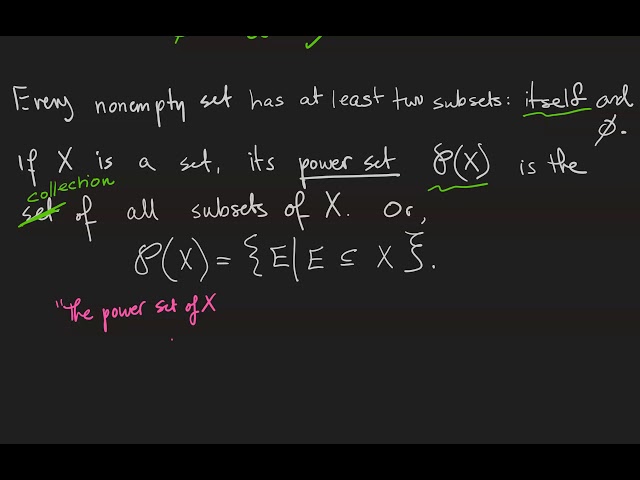 Every nonempty set has at least two subsets: itself and
∅.
If X is a set, its power set ℘(X) is the
collection
set of all subsets of X. Or,
℘(X) = {E| E ⊆ X}.
"the power set of X